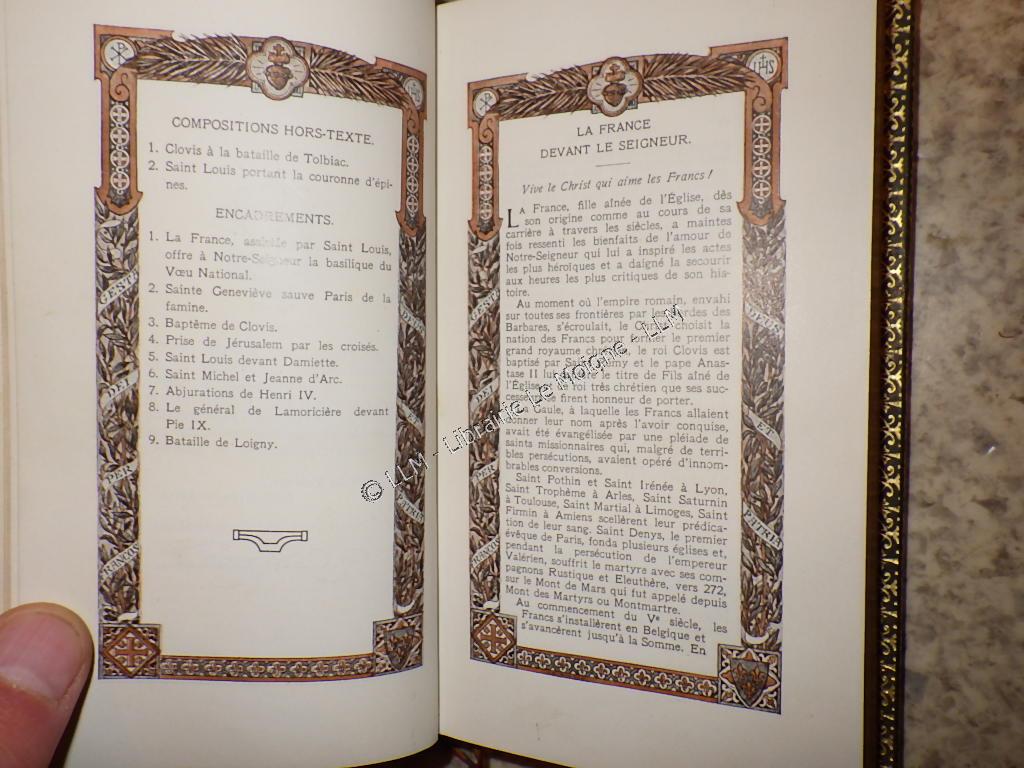 COMPOSITIONS HORS-TEXTE.
1. Clovis à la bataille de Tolbiac.
2. Saint Louis portant la couronne d'épi-
nes.
ENCADREMENTS.
1. La France, assistée par Saint Louis,
offre à Notre-Seigneur la basilique du
Vœu National.
2. Sainte Geneviève sauve Paris de la
famine.
3. Baptême de Clovis.
4. Prise de Jérusalem par les croisés.
5. Saint Louis devant Damiette.
6. Saint Michel et Jeanne d'Arc.
7. Abjurations de Henri IV.
8. Le général de Lamoricière devant
Pie IX.
9. Bataille de Loigny.
GESTA
DEI
PER
FRANCOS
DEUS
ET
PATRIA
IHS
LA FRANCE
DEVANT LE SEIGNEUR.
Vive le Christ qui aime les Francs !
LA France, fille aînée de l'Église, dès
son origine comme au cours de sa
carrière à travers les siècles, a maintes
fois ressenti les bienfaits de l'amour de
Notre-Seigneur qui lui a inspiré les actes
les plus héroïques et a daigné la secourir
aux heures les plus critiques de son his-
toire.
Au moment où l'empire romain, envahi
sur toutes ses frontières par les hordes des
Barbares, s'écroulait, le Christ choisit la
nation des Francs pour former le premier
grand royaume chrétien, le roi Clovis est
baptisé par Saint Remy et le pape Anas-
tase II lui le titre de Fils aîné de
l'Église et de roi très chrétien que ses suc-
cesseurs se firent honneur de porter.
La Gaule, à laquelle les Francs allaient
donner leur nom après l'avoir conquise,
avait été évangélisée par une pléiade de
saints missionnaires qui, malgré de terri-
bles persécutions, avaient opéré d'innom-
brables conversions.
Saint Pothin et Saint Irénée à Lyon,
Saint Trophème à Arles, Saint Saturnin
à Toulouse, Saint Martial à Limoges, Saint
Firmin à Amiens scellèrent leur prédica-
tion de leur sang. Saint Denys, le premier
évêque de Paris, fonda plusieurs églises et,
pendant la persécution de l'empereur
Valérien, souffrit le martyre avec ses com-
pagnons Rustique et Eleuthère, vers 272,
sur le Mont de Mars qui fut appelé depuis
Mont des Martyrs ou Montmartre.
Au commencement du Ve siècle, les
Francs s'installèrent en Belgique et
s'avancèrent jusqu'à la Somme. En
GESTA
DEI
PER
FRANCOS
DEUS
ET
PATRIA
© LLM - Librairie Le Moigne - LLM